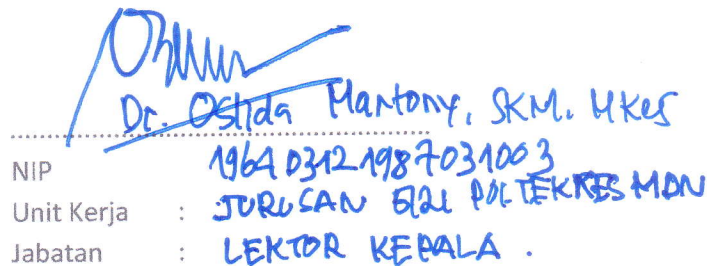 Dr. Oslida Martony, SKM. MKes
NIP 196403121987031003
Unit Kerja : JURUSAN GIZI POLTEKKES MDN
Jabatan : LEKTOR KEPALA .